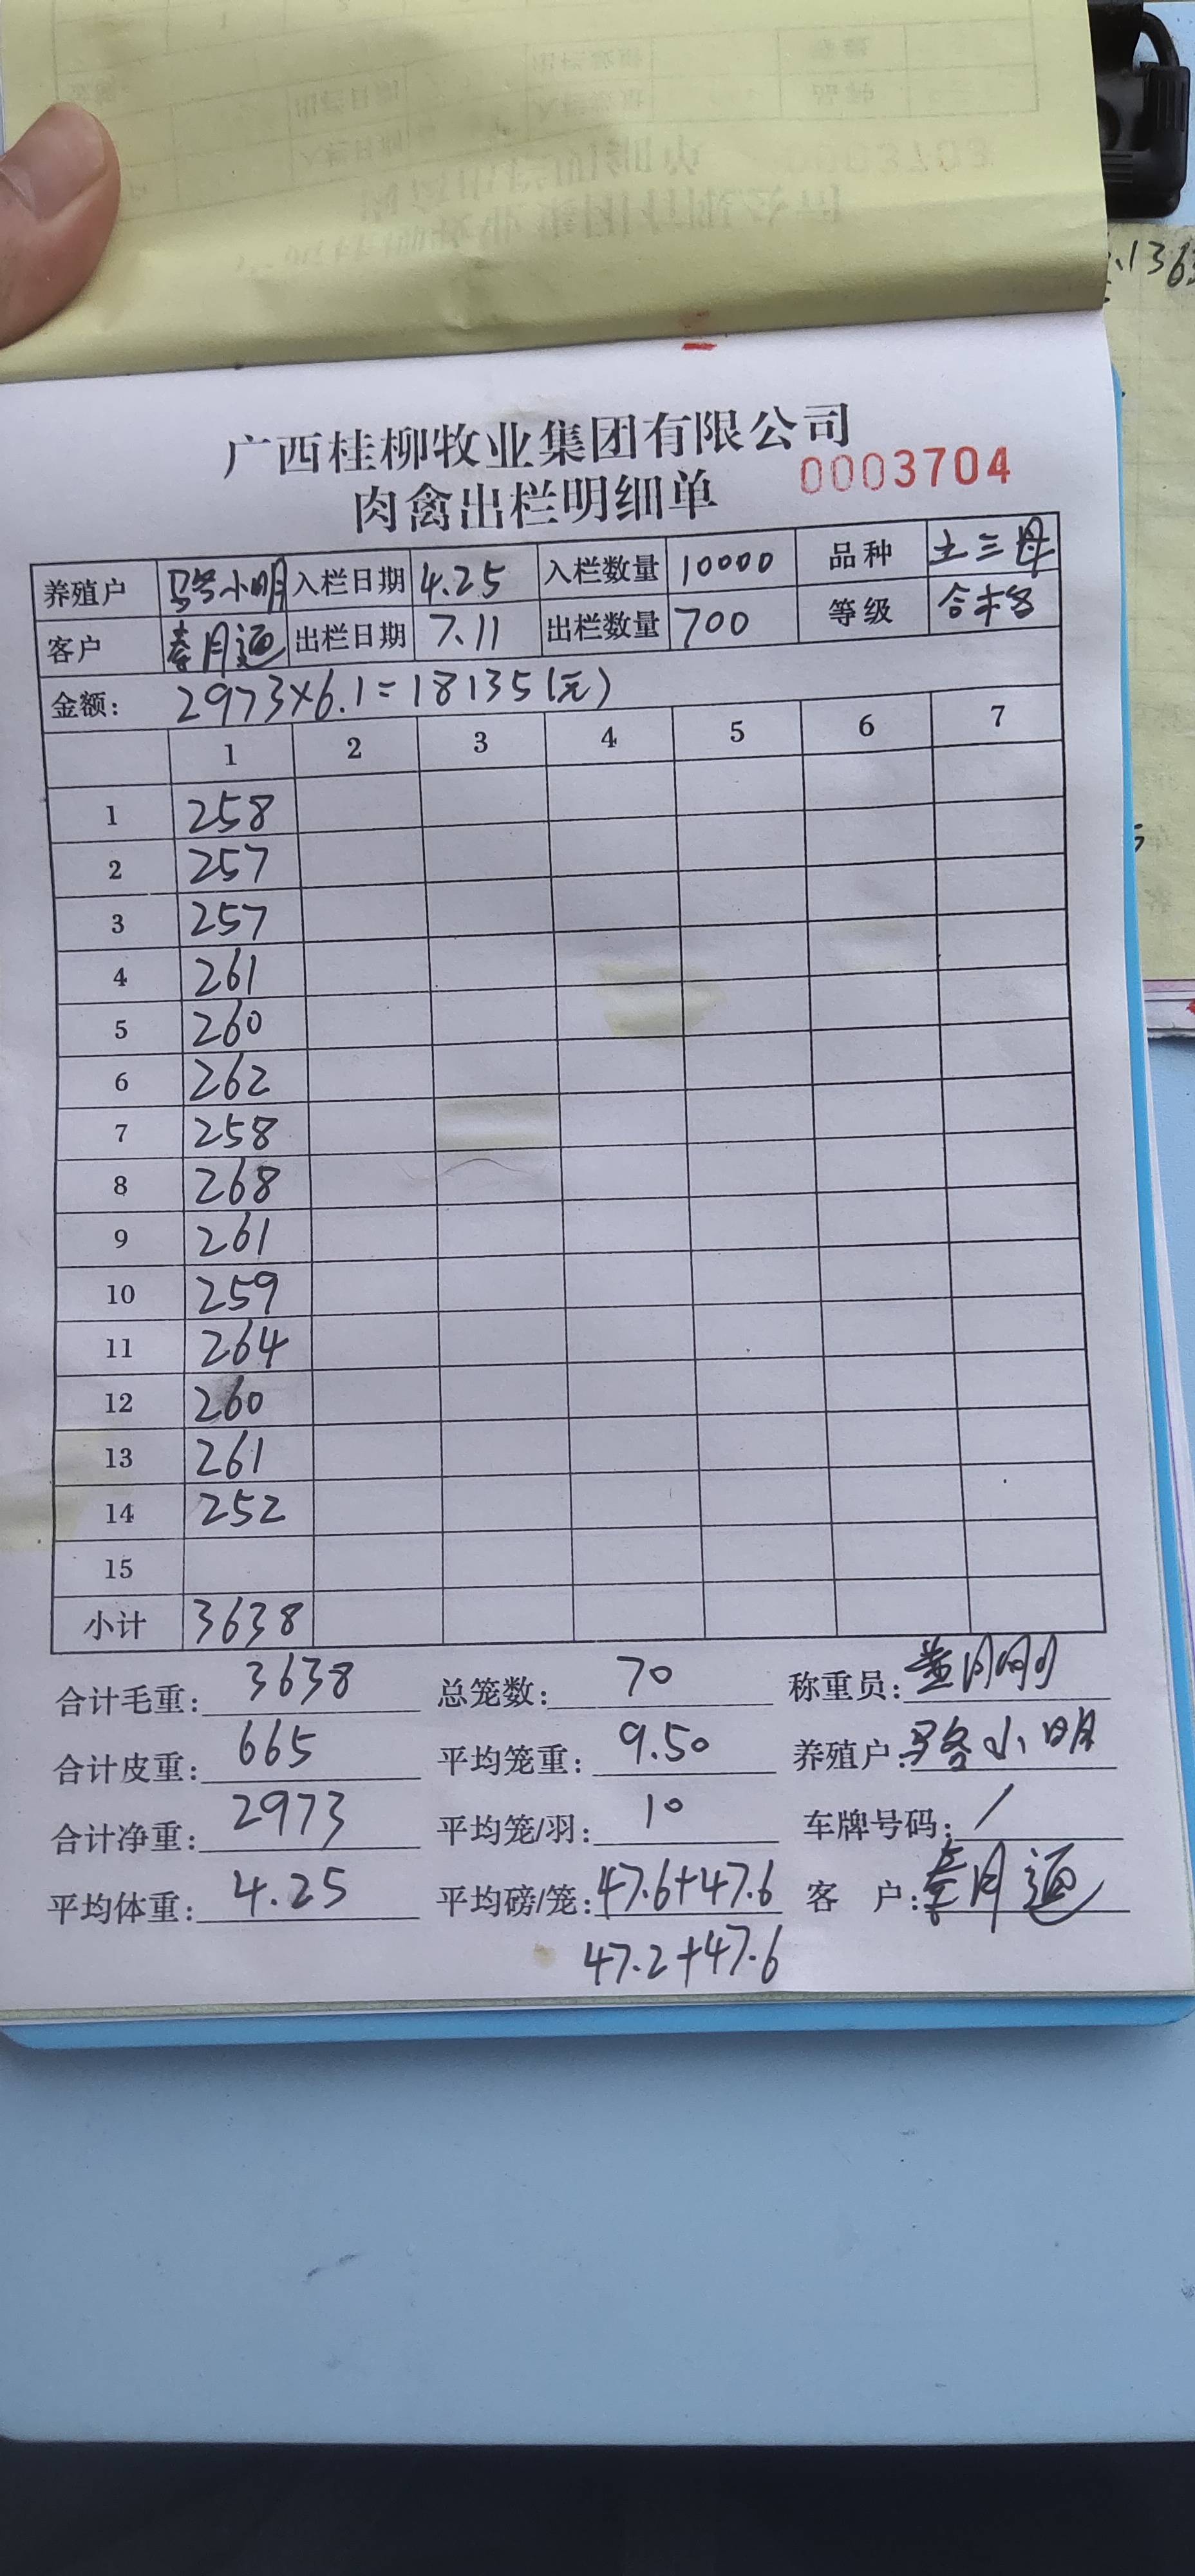 广西桂柳牧业集团有限公司
肉禽出栏明细单 0003704
养殖户 骆小明 入栏日期 4.25 入栏数量 10000 品种 土三母
客户 秦月通 出栏日期 7.11 出栏数量 700 等级 合格
金额: 2973×6.1=18135(元)
1 2 3 4 5 6 7
1 258
2 257
3 257
4 261
5 260
6 262
7 258
8 268
9 261
10 259
11 264
12 260
13 261
14 252
15
小计 3638
合计毛重: 3638 总笼数: 70 称重员: 黄刚
合计皮重: 665 平均笼重: 9.50 养殖户: 骆小明
合计净重: 2973 平均笼/羽: 10 车牌号码: /
平均体重: 4.25 平均磅/笼: 47.6+47.6 客 户: 秦月通
47.2+47.6